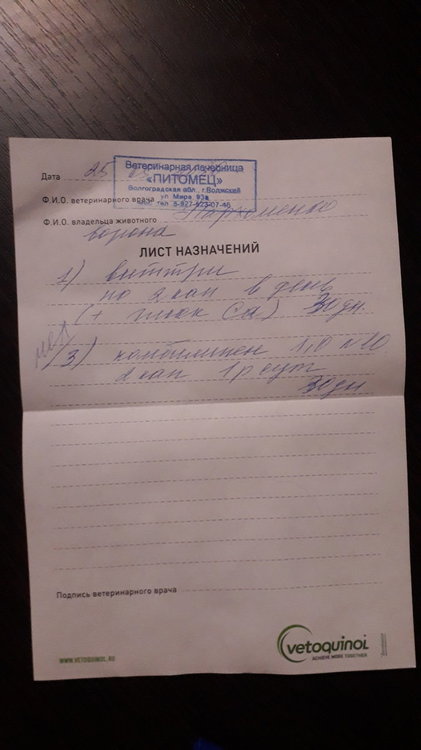 Дата 25
Ветеринарная лечебница
«ПИТОМЕЦ»
Волгоградская обл., г.Волжский
ул. Мира, 93а
тел. 8-927-523-07-46
Ф.И.О. ветеринарного врача Пархоменко
Ф.И.О. владельца животного
ворона
ЛИСТ НАЗНАЧЕНИЙ
1) виттри
по 2 кап в день
(+ глюк Ca) 30 дн
3) 1,0 n 10
2 кап 1 р сут
30 дн
Подпись ветеринарного врача
WWW.VETOQUINOL.RU
vetoquinol
ACHIEVE MORE TOGETHER